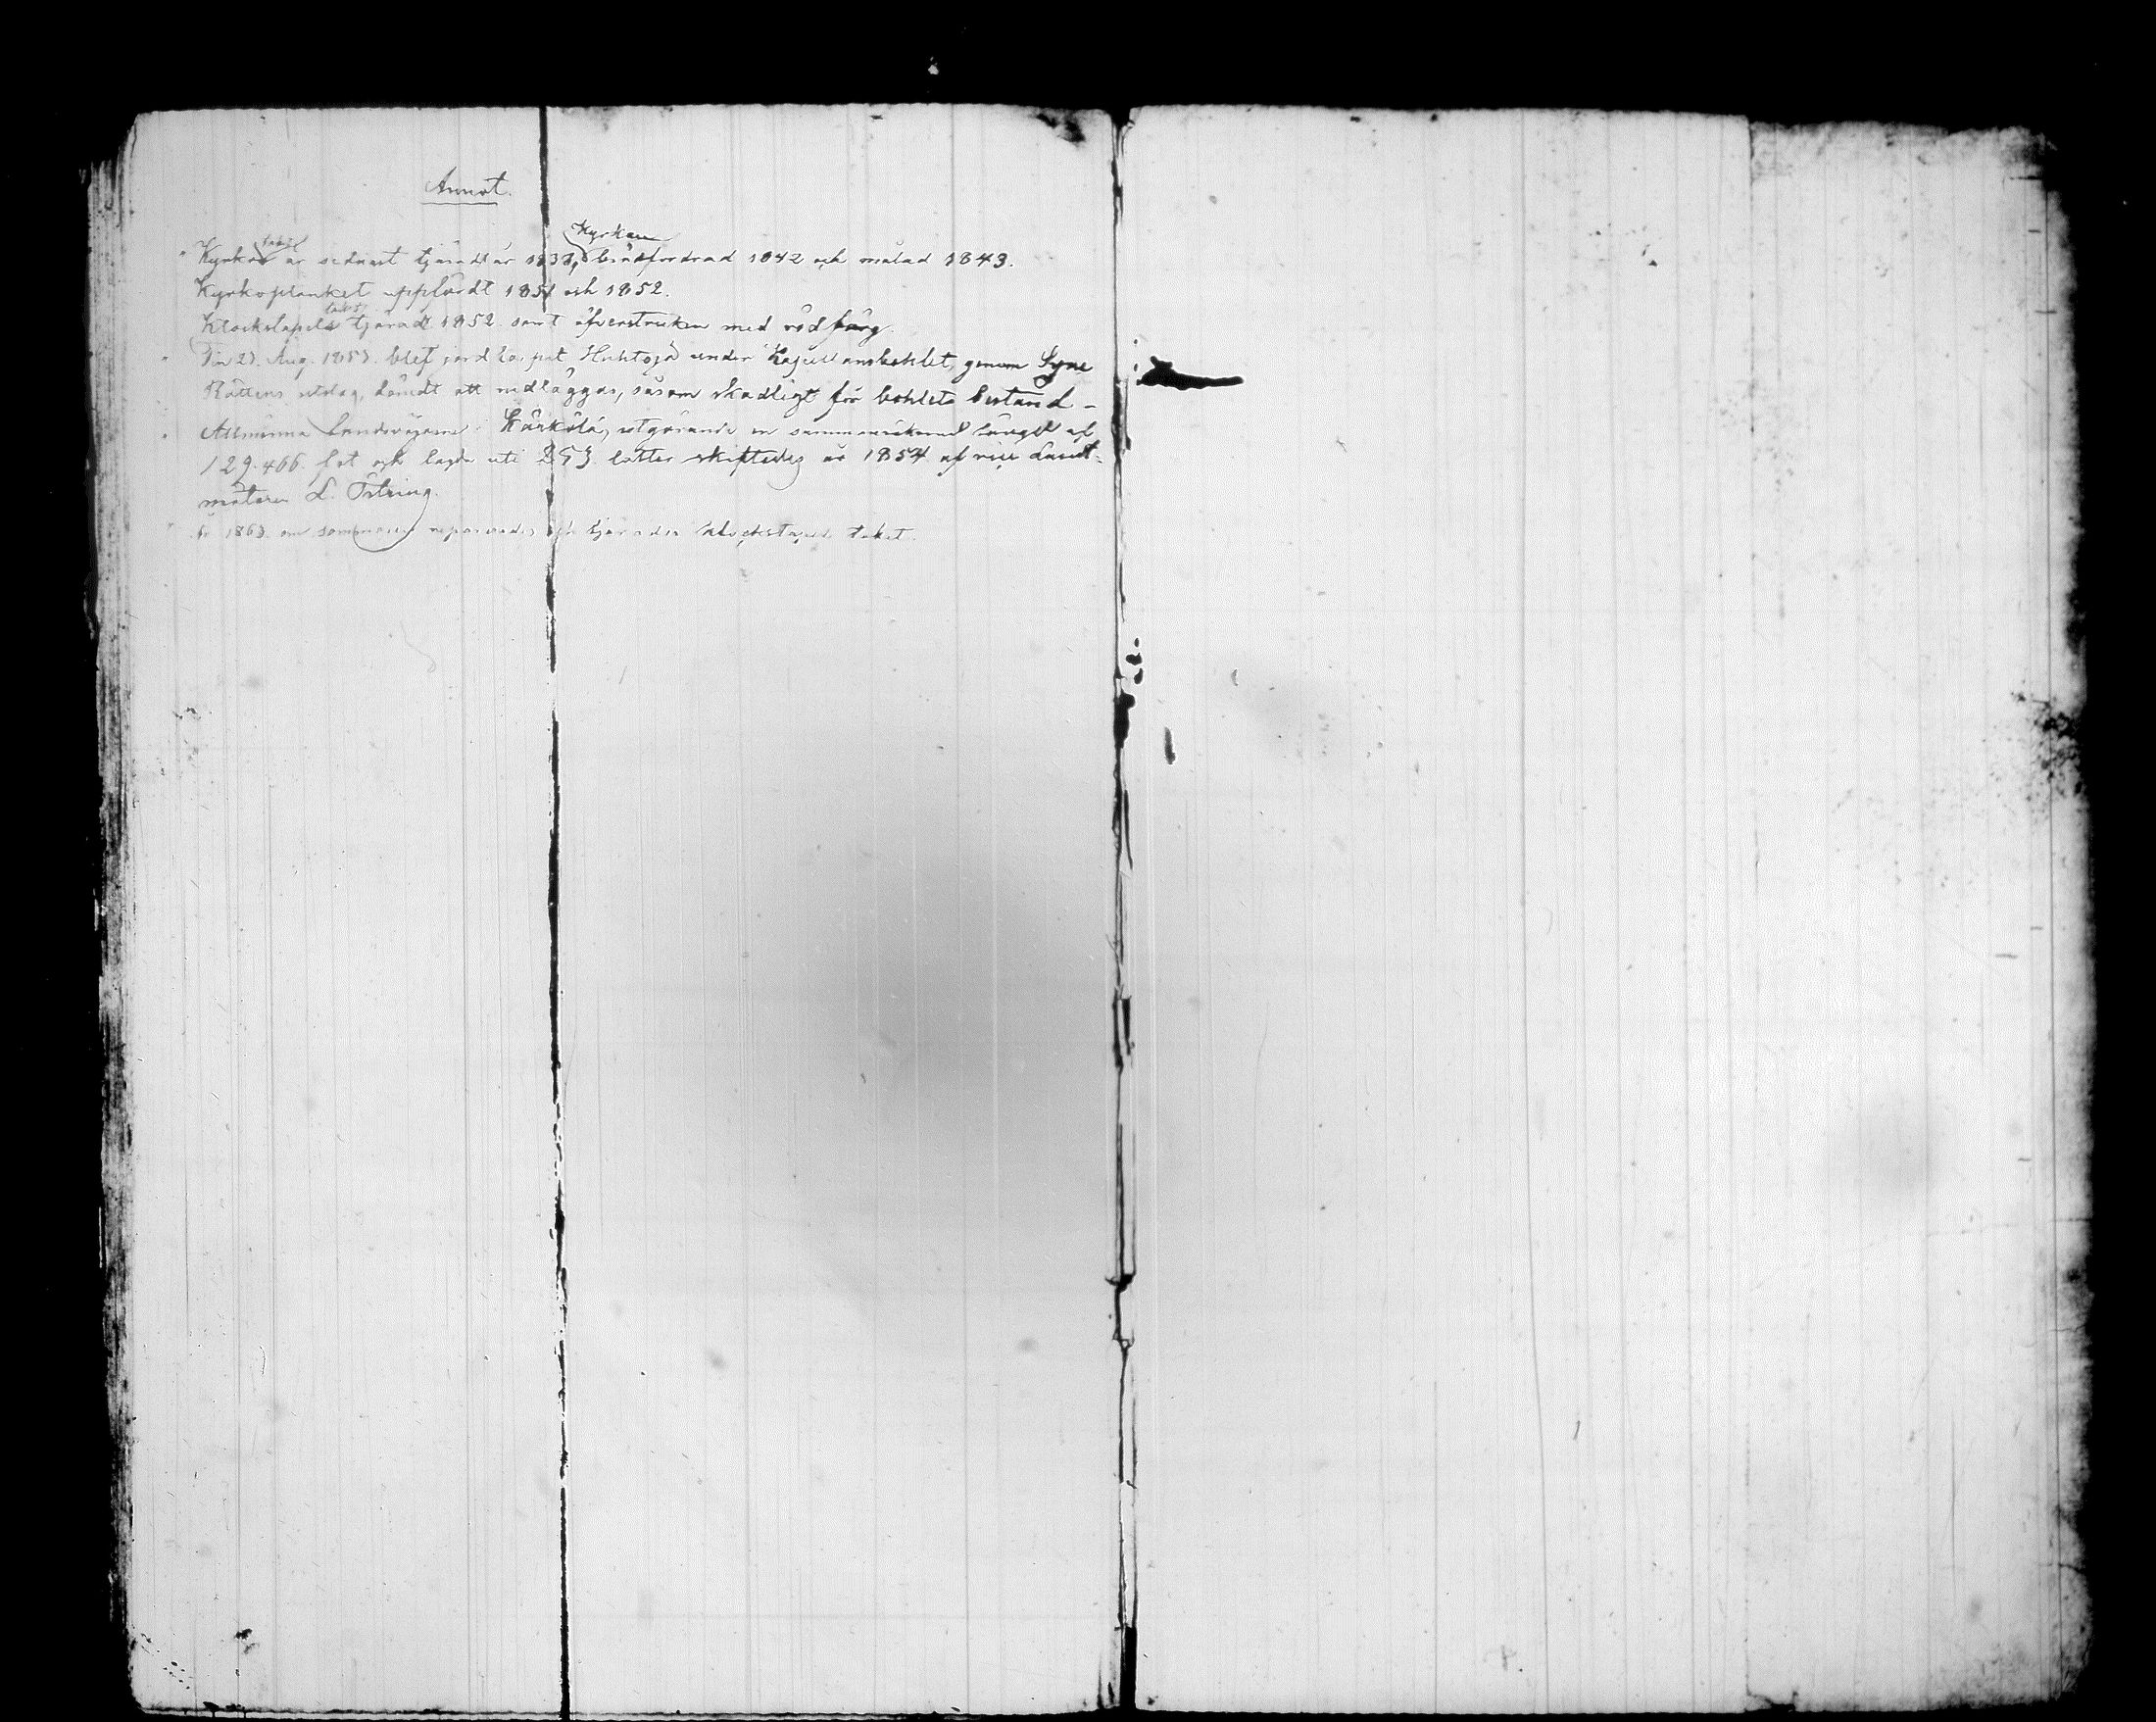 Annot.
Kyrko taket är sednast tjäradt år 1838, Kyrkan brädfordrad 1842 och målad 1843.
Kyrkoplanket uppfördt 1851 och 1852.
Klockstapels taket tjäradt 1852 samt öfverstruken med röd färg.
Den 27. Aug. 1853. blef jordtorpet Huhtoja under Kapellansbohlet, genom Syne
Rättens utslag, dömdt att nedläggas, såsom skadligt för bohlets bestånd –
Allmänna landsvägarne i Kärkölä, utgörande en sammanräknad längd af
129.466. fot och lagde uti 253 lotter skiftades år 1854 af vice Landt-
mätaren L. Östring.
År 1863. om sommaren reparerades och tjärades klockstapels taket.